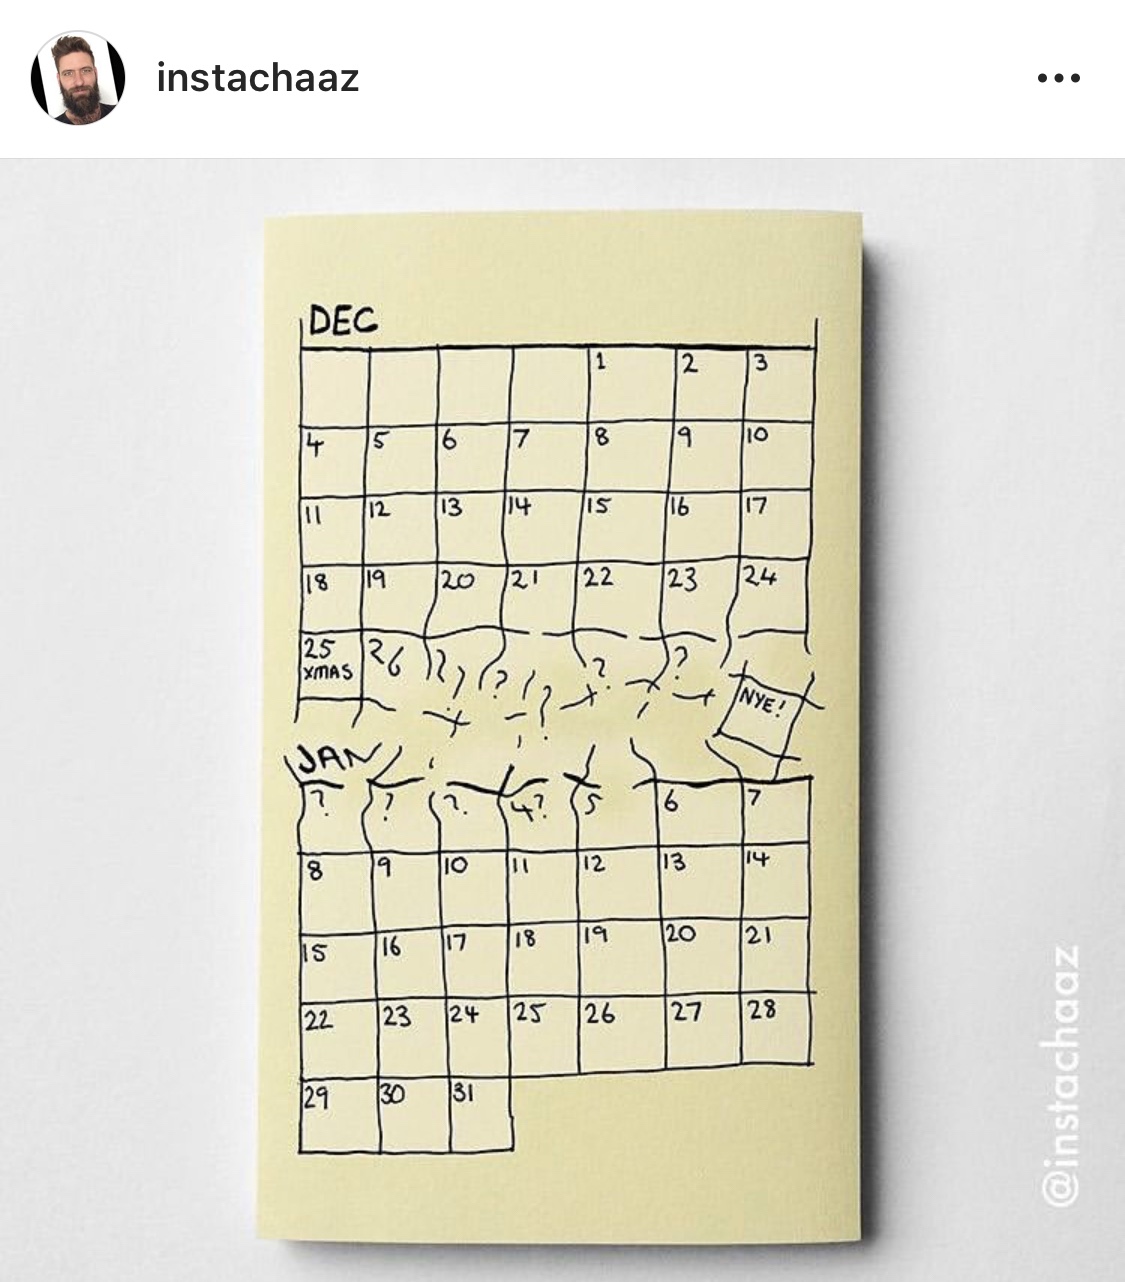 instachaaz
DEC
1 2 3
4 5 6 7 8 9 10
11 12 13 14 15 16 17
18 19 20 21 22 23 24
25 26 ? ? ? ? ?
XMAS
NYE!
JAN
? ? ? 4? 5 6 7
8 9 10 11 12 13 14
15 16 17 18 19 20 21
22 23 24 25 26 27 28
29 30 31
@instachaaz